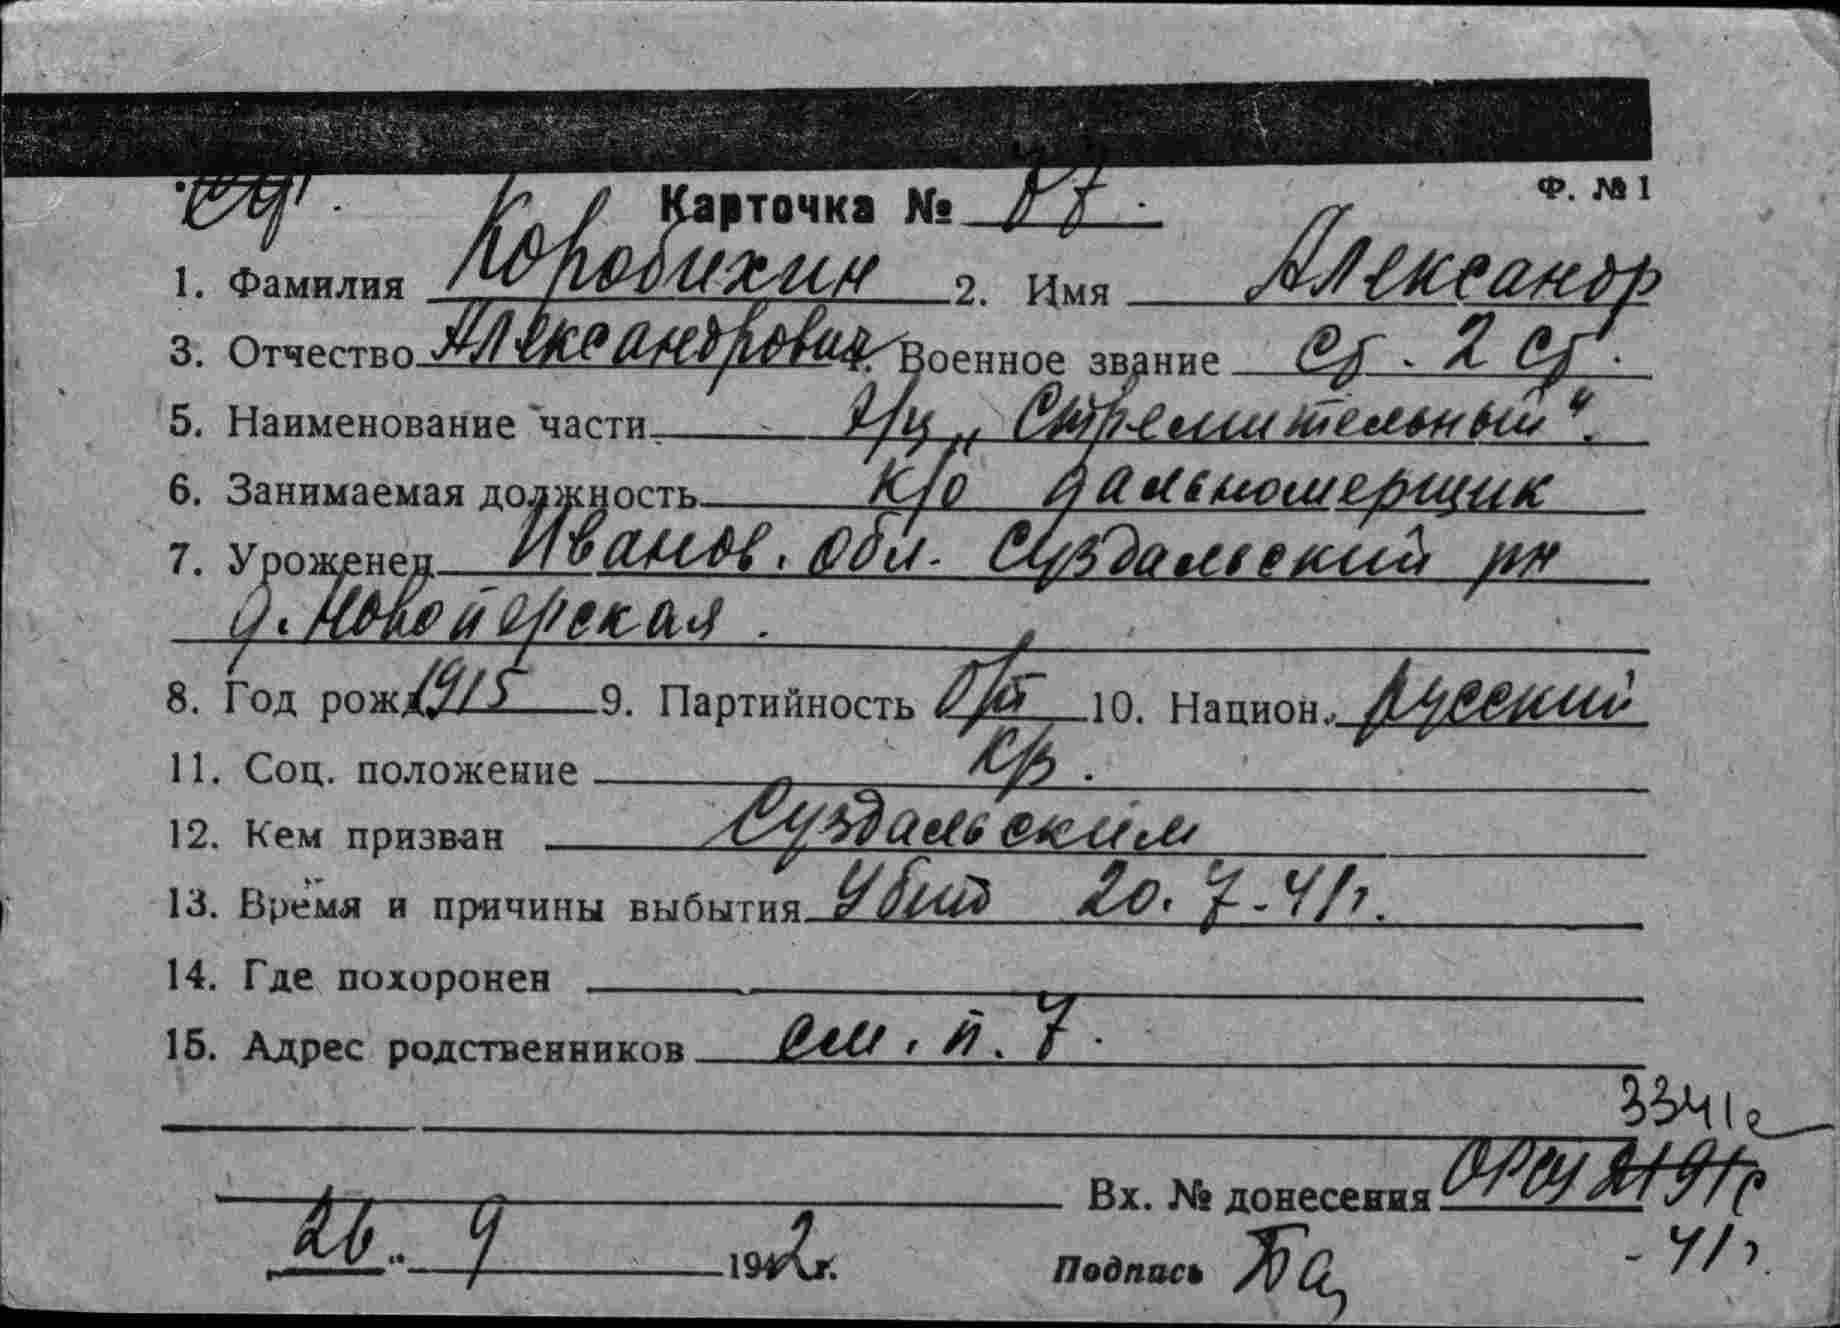 Ф. № 1
Карточка № 77.
1. Фамилия Коробихин 2. Имя Александр
3. Отчество Александрович 4. Военное звание ст. 2 ст.
5. Наименование части „Стремительный“.
6. Занимаемая должность к/о дальномерщик
7. Уроженец Иванов. обл. Суздальский рн
д. Новоперская.
8. Год рожд. 1915 9. Партийность б/п 10. Национ. русский
11. Соц. положение кр.
12. Кем призван Суздальским
13. Время и причины выбытия Убит 20.7-41г.
14. Где похоронен
15. Адрес родственников см. п. 7.
3341с
Вх. № донесения ОРСУ 2191с
-41г.
26. 9 1942г.
Подпись